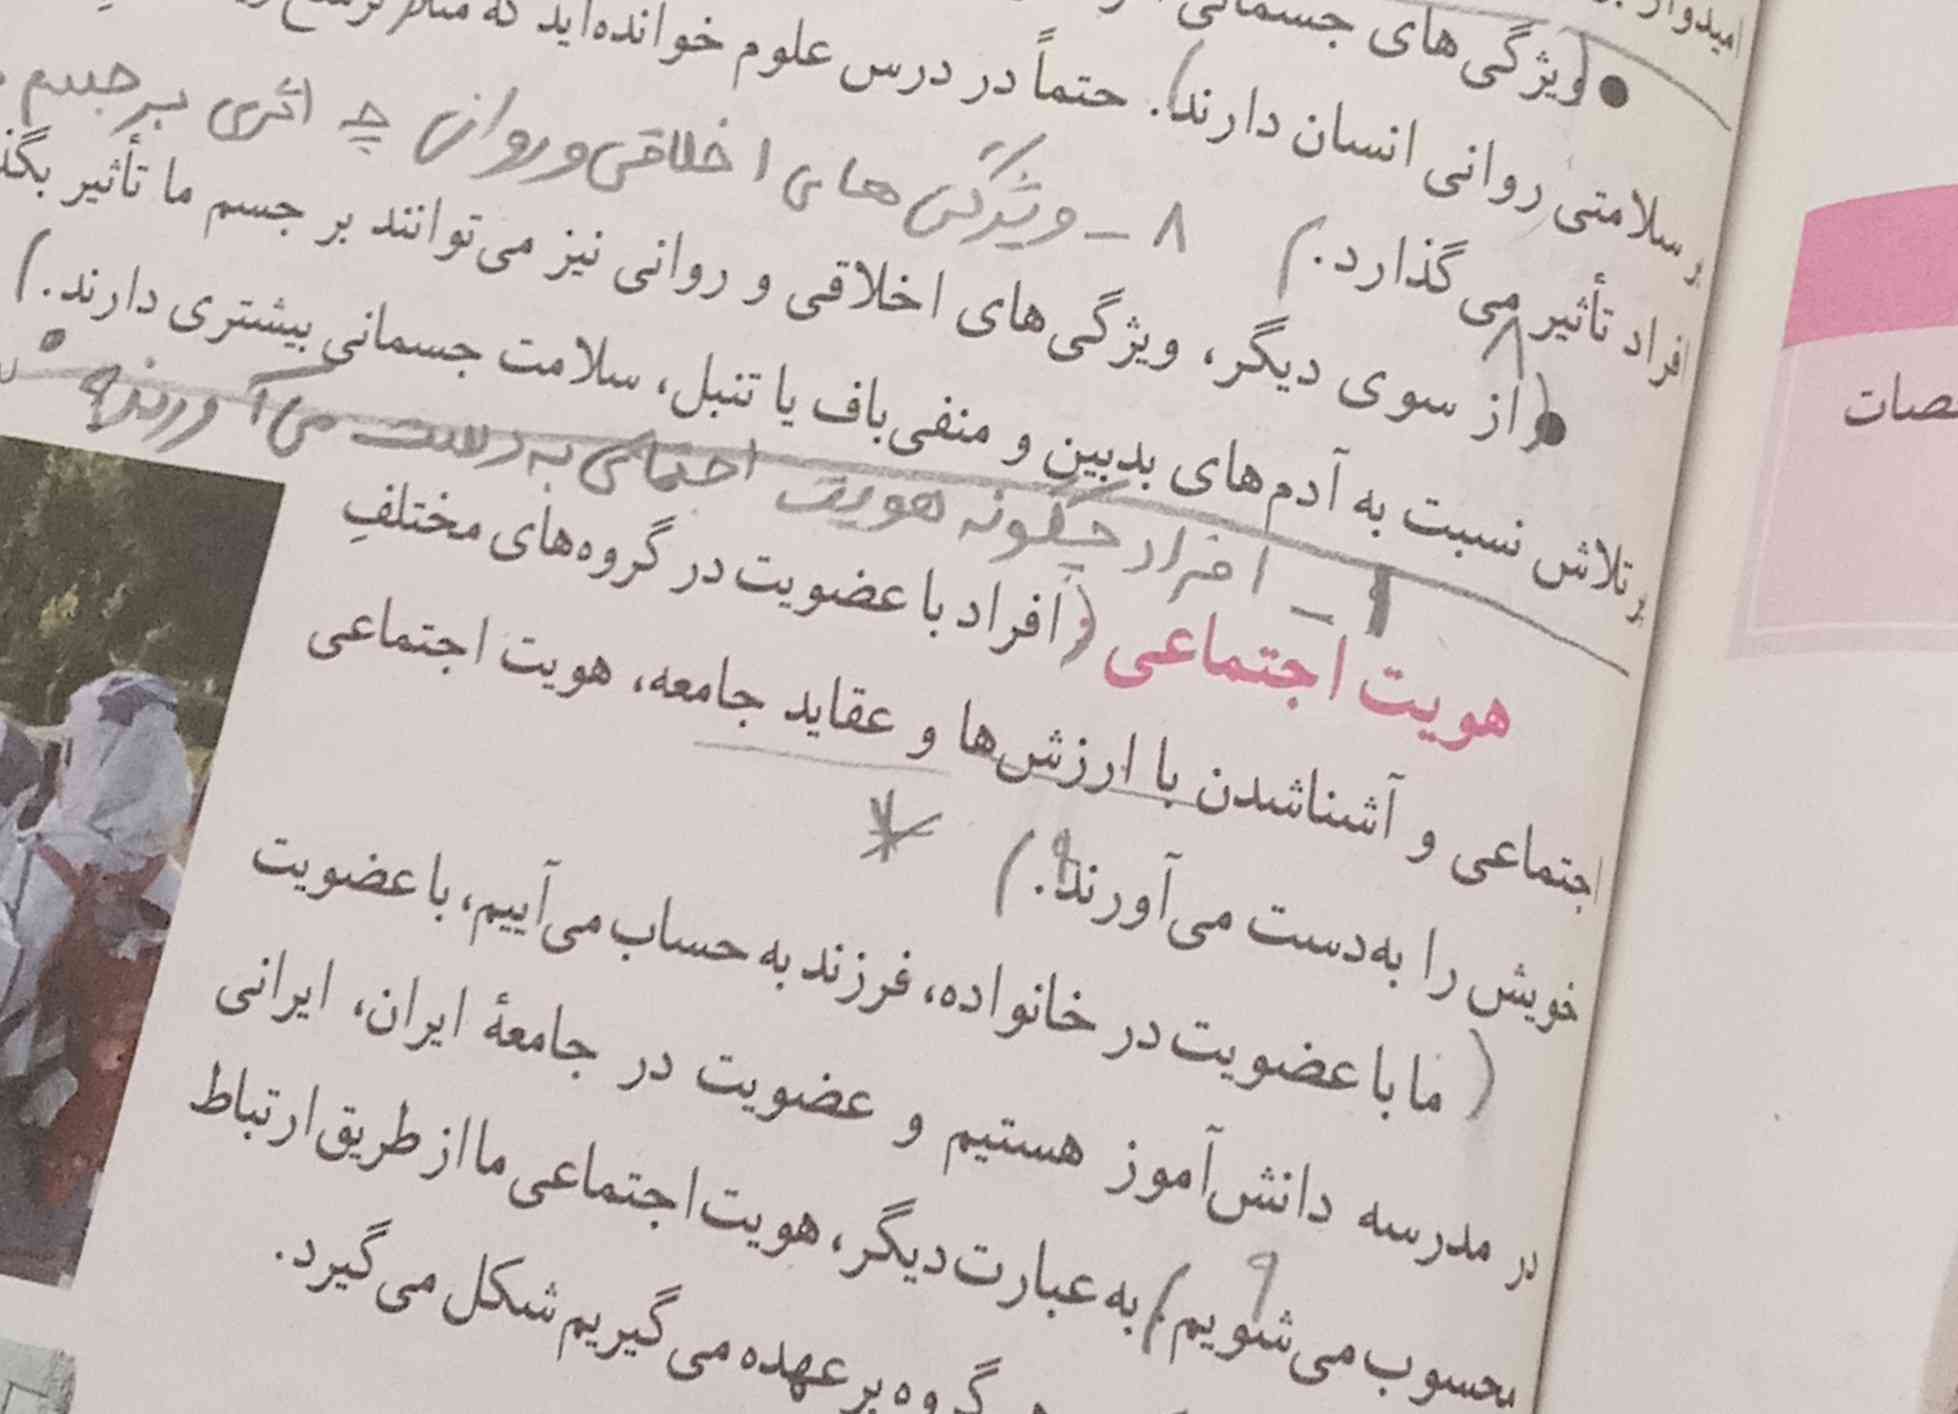 ویژگی‌های جسمانی
بر سلامتی روانی انسان دارند). حتماً در درس علوم خوانده‌اید که مثلاً ترشح
افراد تأثیر می‌گذارد.)
۸ - ویژگی های اخلاقی و روانی چه اثری بر جسم
(از سوی دیگر، ویژگی‌های اخلاقی و روانی نیز می‌توانند بر جسم ما تأثیر
تلاش نسبت به آدم‌های بدبین و منفی‌باف یا تنبل، سلامت جسمانی بیشتری دارند.)
افراد چگونه هویت اجتماعی به دست می آورند؟
هویت اجتماعی (افراد با عضویت در گروه‌های مختلفِ
اجتماعی و آشناشدن با ارزش‌ها و عقاید جامعه، هویت اجتماعی
خویش را به‌دست می‌آورند.)
(ما با عضویت در خانواده، فرزند به حساب می‌آییم، با عضویت
در مدرسه دانش‌آموز هستیم و عضویت در جامعهٔ ایران، ایرانی
محسوب می‌شویم.) به عبارت دیگر، هویت اجتماعی ما از طریق ارتباط
گروه بر عهده می‌گیریم شکل می‌گیرد.